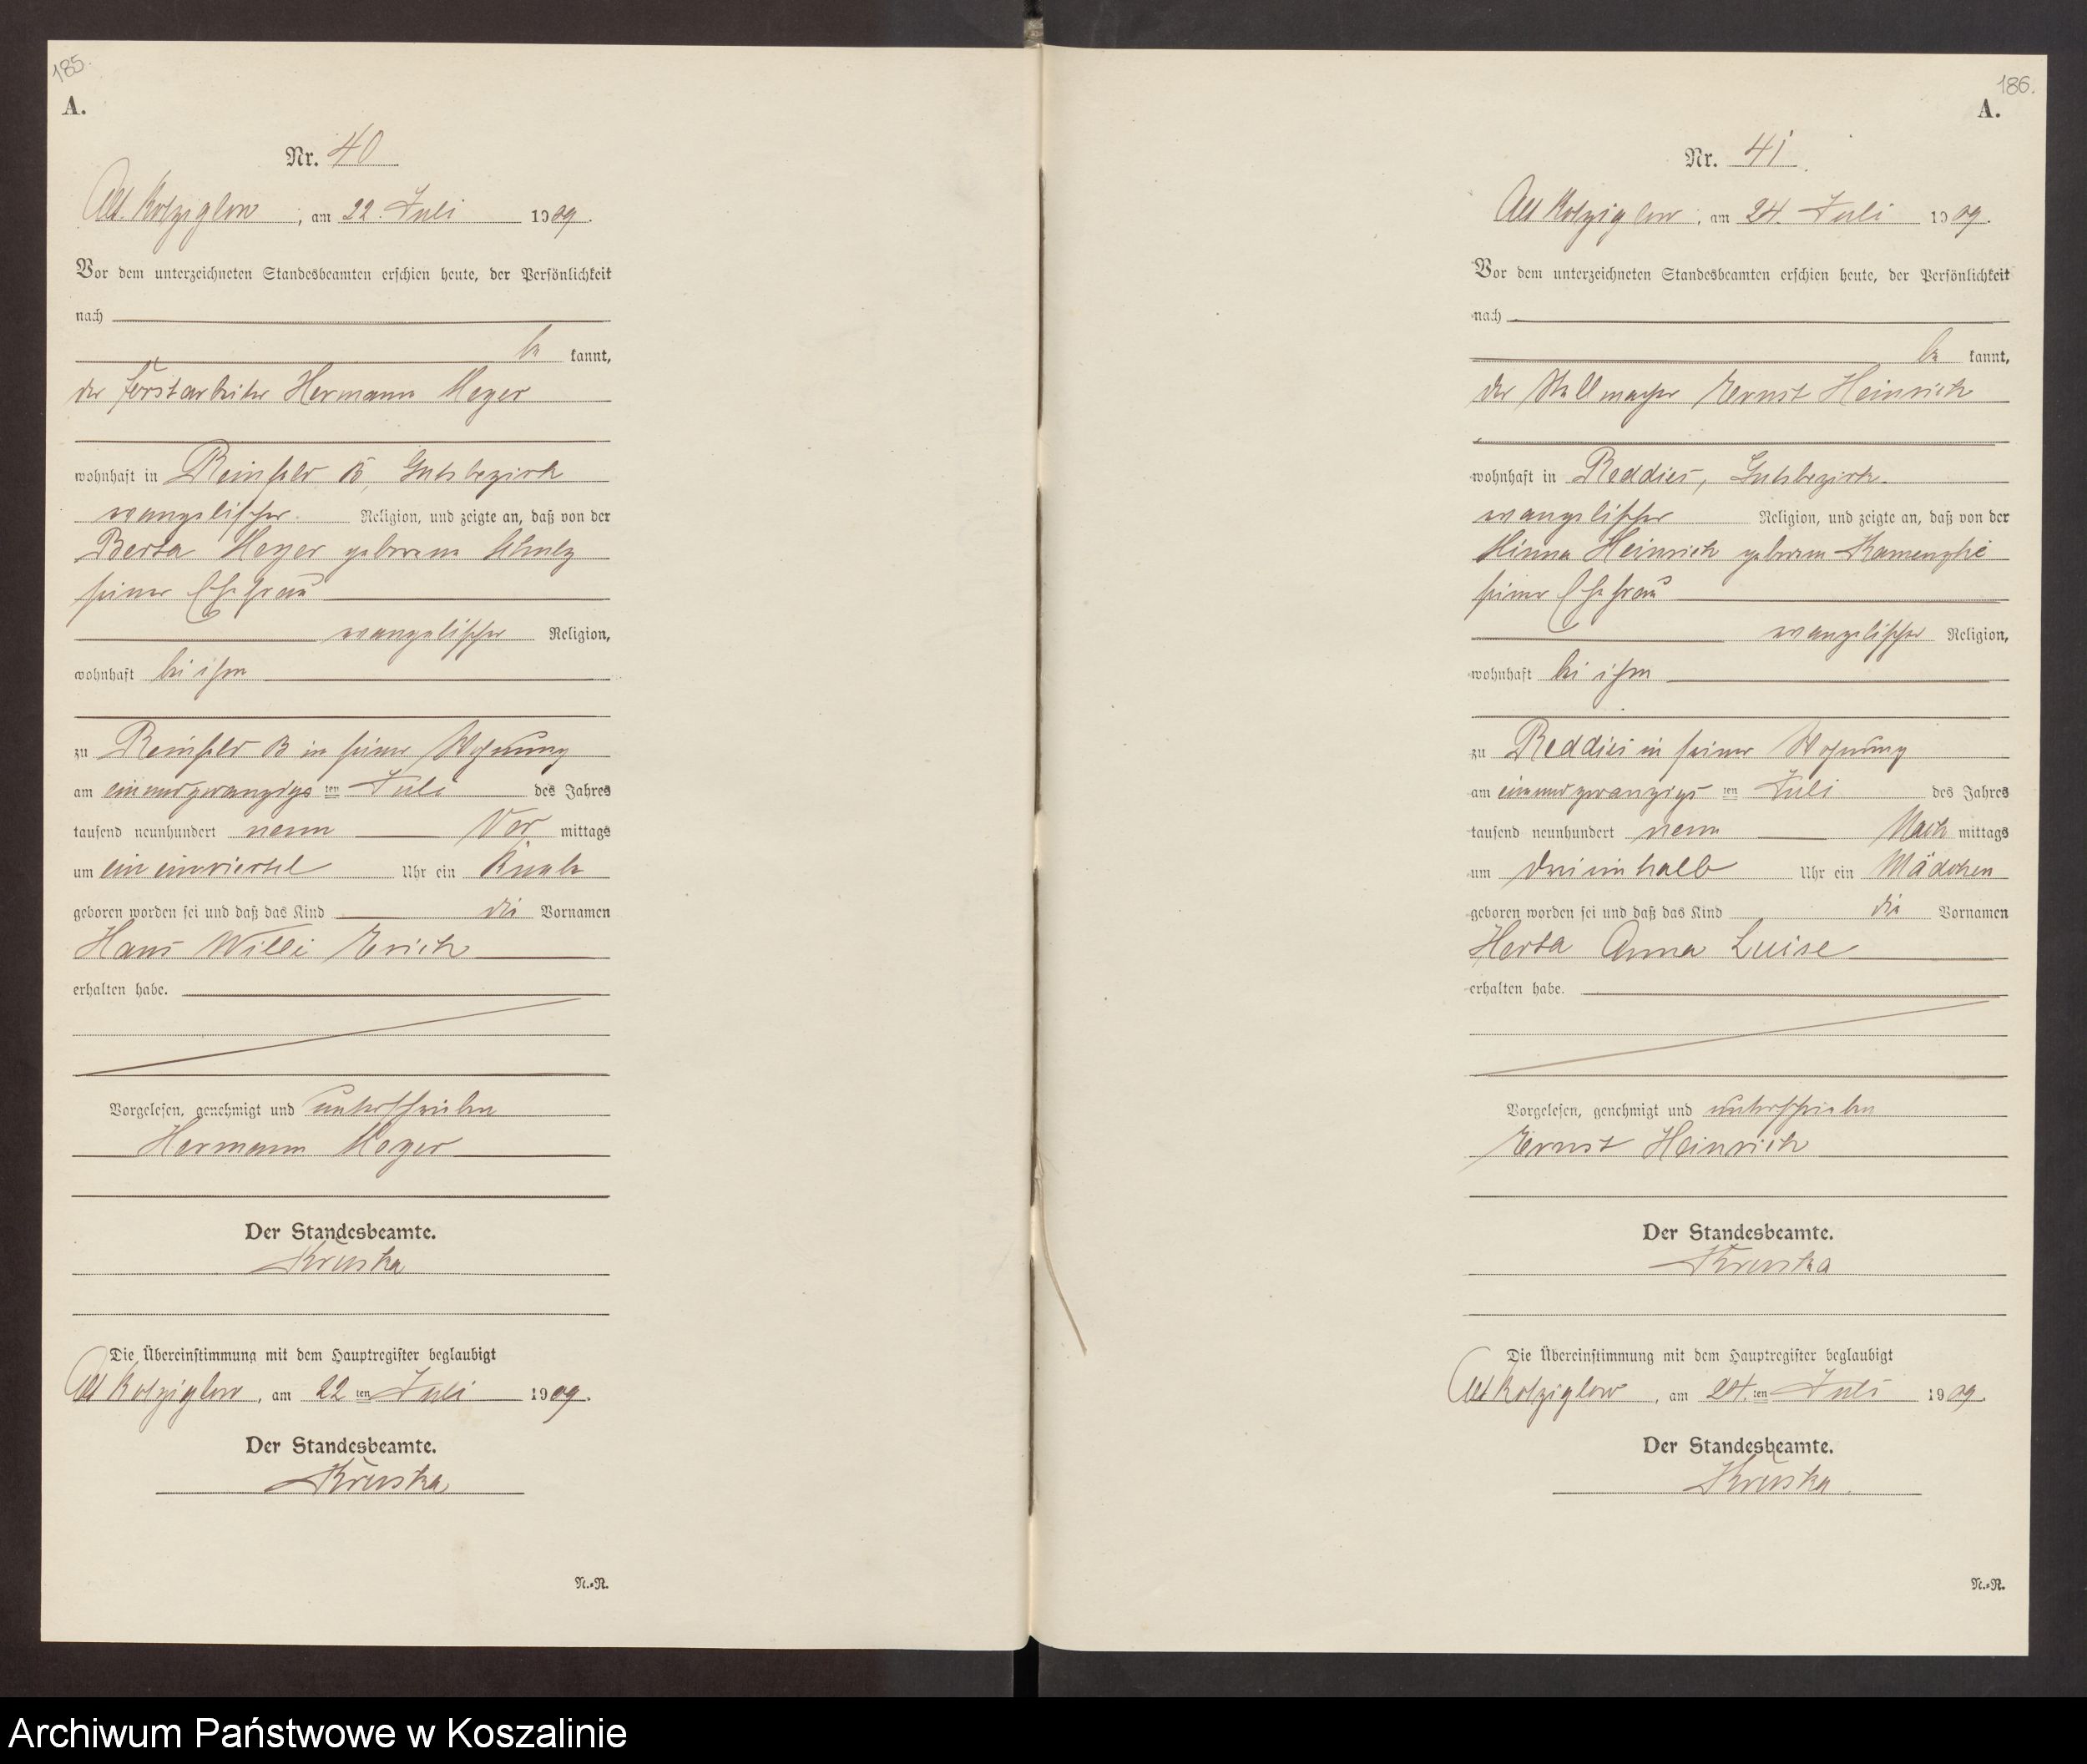 185.
A.
Nr. 40
Alt Kolziglow, am 22. Juli 1909.
Vor dem unterzeichneten Standesbeamten erschien heute, der Persönlichkeit
nach
be kannt,
der Forstarbeiter Hermann Meyer
wohnhaft in Reinfeld B, Gutsbezirk
evangelischer Religion, und zeigte an, daß von der
Berta Meyer geborene Schulz
seiner Ehefrau
evangelischer Religion,
wohnhaft bei ihm
zu Reinfeld B in seiner Wohnung
am einundzwanzigsten Juli des Jahres
tausend neunhundert neun Vor mittags
um ein einviertel Uhr ein Knabe
geboren worden sei und daß das Kind die Vornamen
Hans Willi Erich
erhalten habe.
Vorgelesen, genehmigt und unterschrieben
Hermann Meyer
Der Standesbeamte.
Kruska
Die Übereinstimmung mit dem Hauptregister beglaubigt
Alt Kolziglow, am 22 ten Juli 1909.
Der Standesbeamte.
Kruska
N.=R.
186.
A.
Nr. 41
Alt Kolziglow, am 24. Juli 1909.
Vor dem unterzeichneten Standesbeamten erschien heute, der Persönlichkeit
nach
be kannt,
der Stellmacher Ernst Heinrich
wohnhaft in Reddies, Gutsbezirk
evangelischer Religion, und zeigte an, daß von der
Minna Heinrich geborene
seiner Ehefrau
evangelischer Religion,
wohnhaft bei ihm
zu Reddies in seiner Wohnung
am einundzwanzigsten Juli des Jahres
tausend neunhundert neun Nach mittags
um dreieinhalb Uhr ein Mädchen
geboren worden sei und daß das Kind die Vornamen
Herta Anna Luise
erhalten habe.
Vorgelesen, genehmigt und unterschrieben
Ernst Heinrich
Der Standesbeamte.
Kruska
Die Übereinstimmung mit dem Hauptregister beglaubigt
Alt Kolziglow, am 24. ten Juli 1909.
Der Standesbeamte.
Kruska
N.=R.
Archiwum Państwowe w Koszalinie